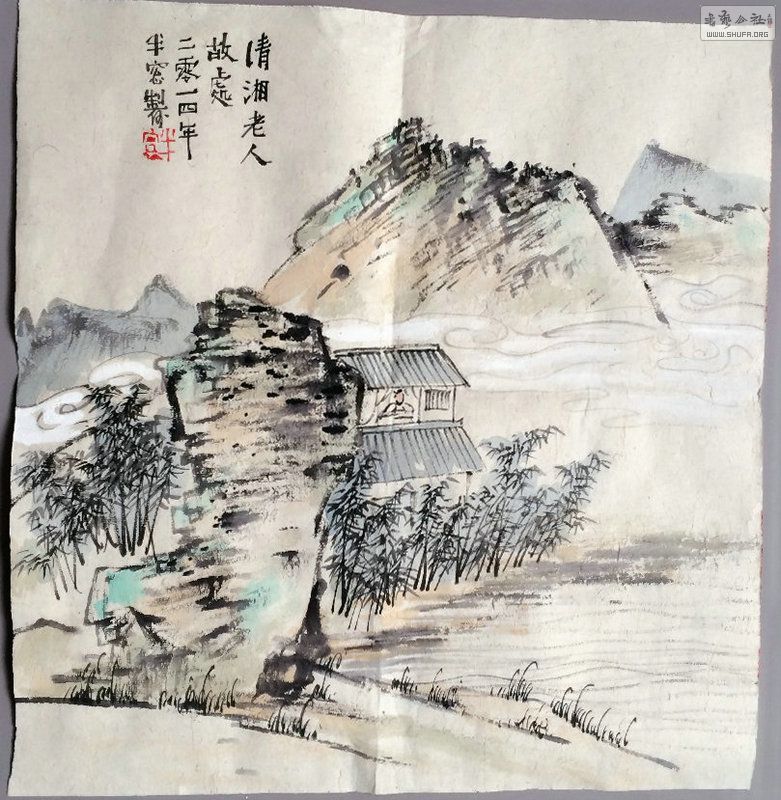 清湘老人
故處
二零一四年
半 製
半
书艺公社
WWW.SHUFA.ORG